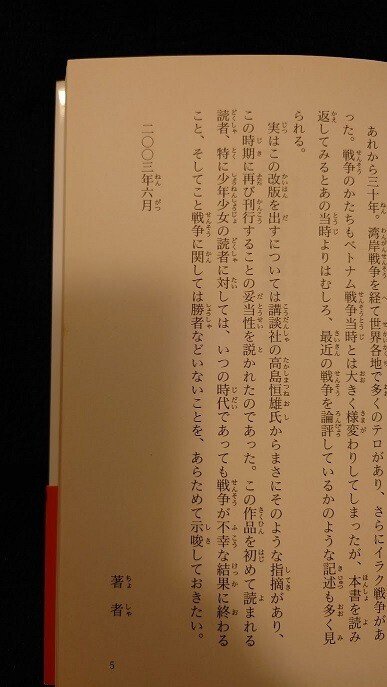 あれから三十年。湾岸戦争を経て世界各地で多くのテロがあり、さらにイラク戦争があ
った。戦争のかたちもベトナム戦争当時とは大きく様変わりしてしまったが、本書を読み
返してみるとあの当時よりはむしろ、最近の戦争を論評しているかのような記述も多く見
られる。
実はこの改版を出すについては講談社の高島恒雄氏からまさにそのような指摘があり、
この時期に再び刊行することの妥当性を説かれたのであった。この作品を初めて読まれる
読者、特に少年少女の読者に対しては、いつの時代であっても戦争が不幸な結果に終わる
こと、そしてこと戦争に関しては勝者などいないことを、あらためて示唆しておきたい。
二〇〇三年六月
著者
5